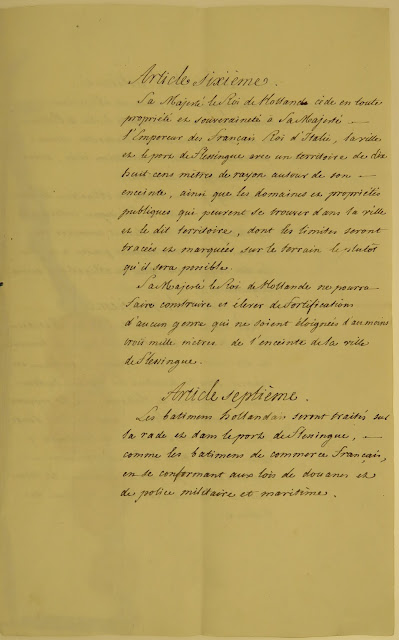 Article sixième.
Sa Majesté le Roi de Hollande cède en toute
propriété et souveraineté à Sa Majesté —
l'Empereur des Français Roi d'Italie, la ville
et le port de Flessingue avec un territoire de dix
huit cens mètres de rayon autour de son —
enceinte, ainsi que les domaines et propriétés
publiques qui peuvent se trouver dans la ville
et le dit territoire, dont les limites seront
tracées et marquées sur le terrain le plutôt
qu'il sera possible.
Sa Majesté le Roi de Hollande ne pourra
faire construire et élever de Fortifications
d'aucun genre qui ne soient éloignées d'au moins
trois mille mètres de l'enceinte de la ville
de Flessingue.
Article septième.
Les batimens hollandais seront traités sur
la rade et dans le port de Flessingue, —
comme les batimens de commerce Français,
en se conformant aux lois de douanes et
de police militaire et maritime.